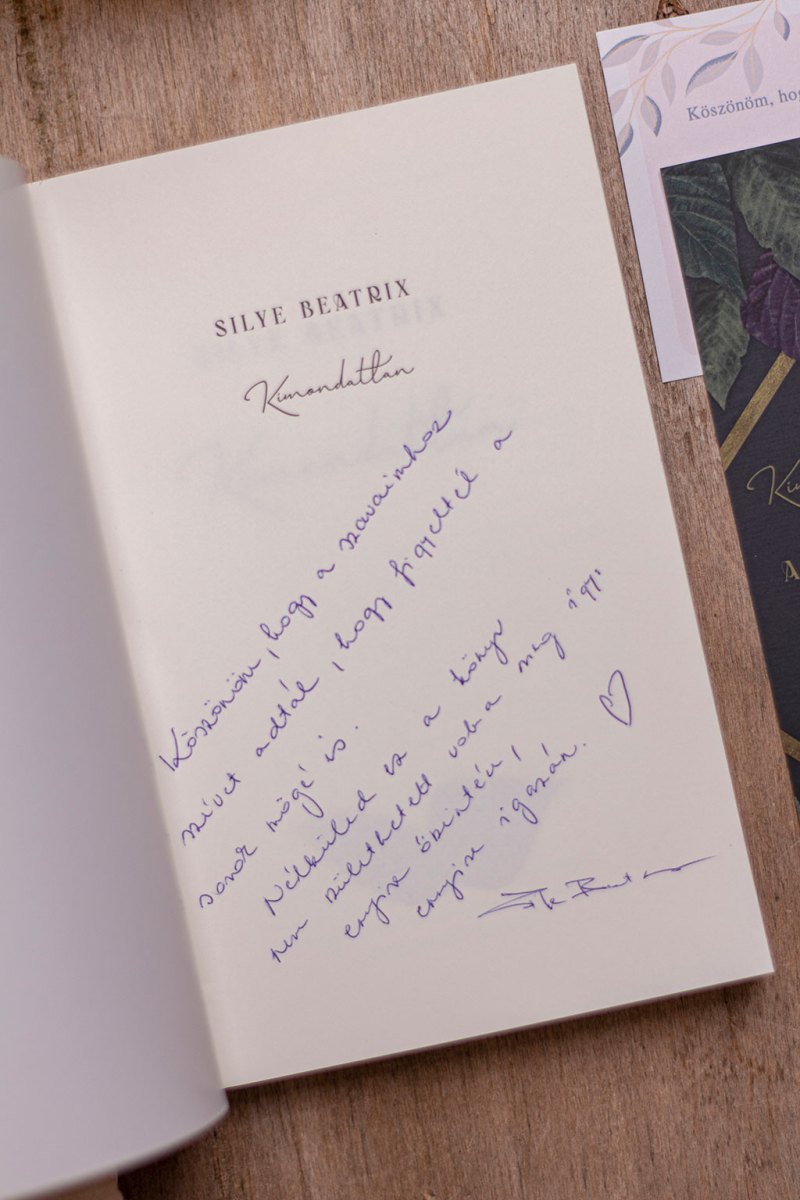 SILYE BEATRIX
Kimondatlan
Köszönöm, hogy a szavaimhoz
szívet adtál, hogy figyeltél a
sorok mögé is.
Nélküled ez a könyv
nem születhetett volna meg így,
ennyire őszintén,
ennyire igazán. ♡
Köszönöm, hog
Ki
A